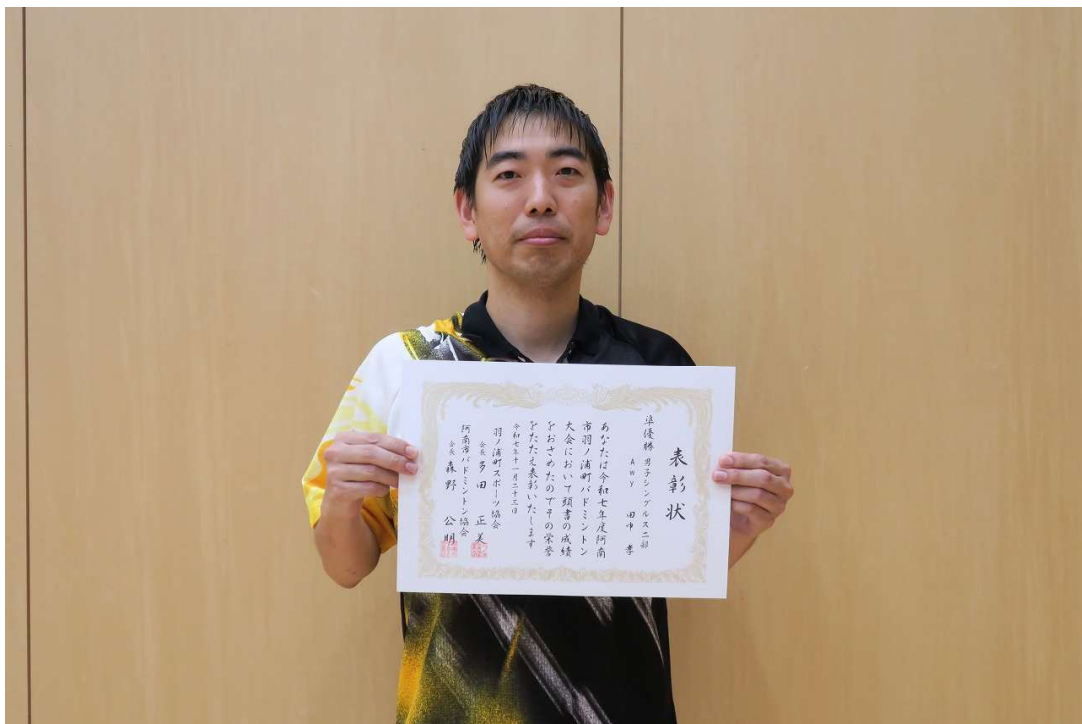 表彰状
準優勝 男子シングルス二部
AWY 田中 孝
あなたは令和七年度阿南
市羽ノ浦町バドミントン
大会において頭書の成績
をおさめたのでその栄誉
をたたえ表彰いたします
令和七年十一月二十三日
羽ノ浦町スポーツ協会
会長 多田 正美
阿南市バドミントン協会
会長 森野 公明